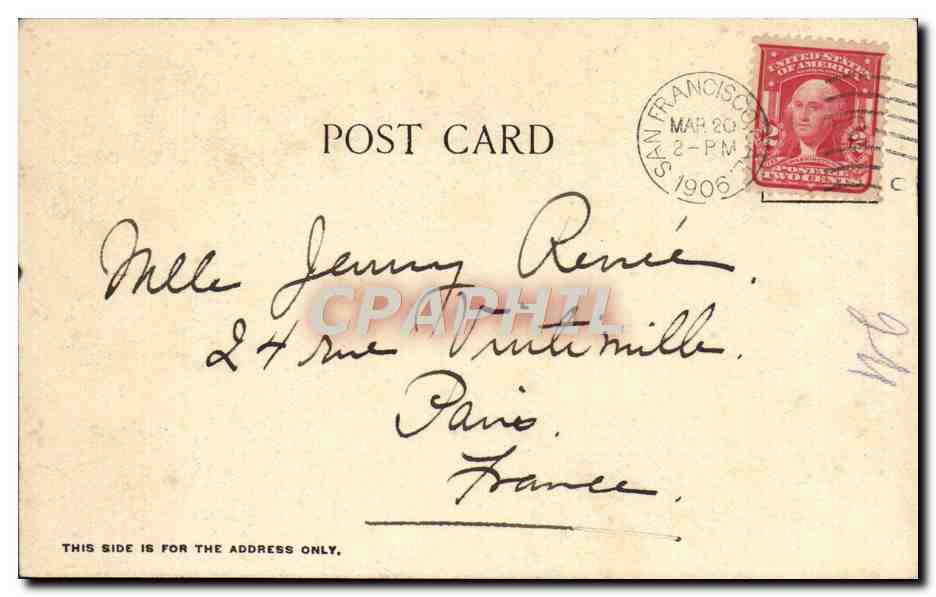 POST CARD
SAN FRANCISCO
MAR 20
2-PM
1906
UNITED STATES
OF AMERICA
POSTAGE
TWO CENTS
C
Mlle Jenny Renée.
CPAPHIL
24 rue Vintimille.
Paris.
France.
THIS SIDE IS FOR THE ADDRESS ONLY.